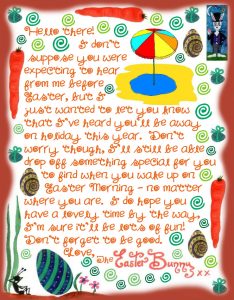 Hello there!
I don't
suppose you were
expecting to hear
from me before
Easter, but I
just wanted to let you know
that I've heard you'll be away
on holiday this year. Don't
worry, though, I'll still be able
drop off something special for you
to find when you wake up on
Easter Morning - no matter
where you are. I do hope you
have a lovely time by the way.
I'm sure it'll be lots of fun!
Don't forget to be good.
Love,
The Easter Bunny xx